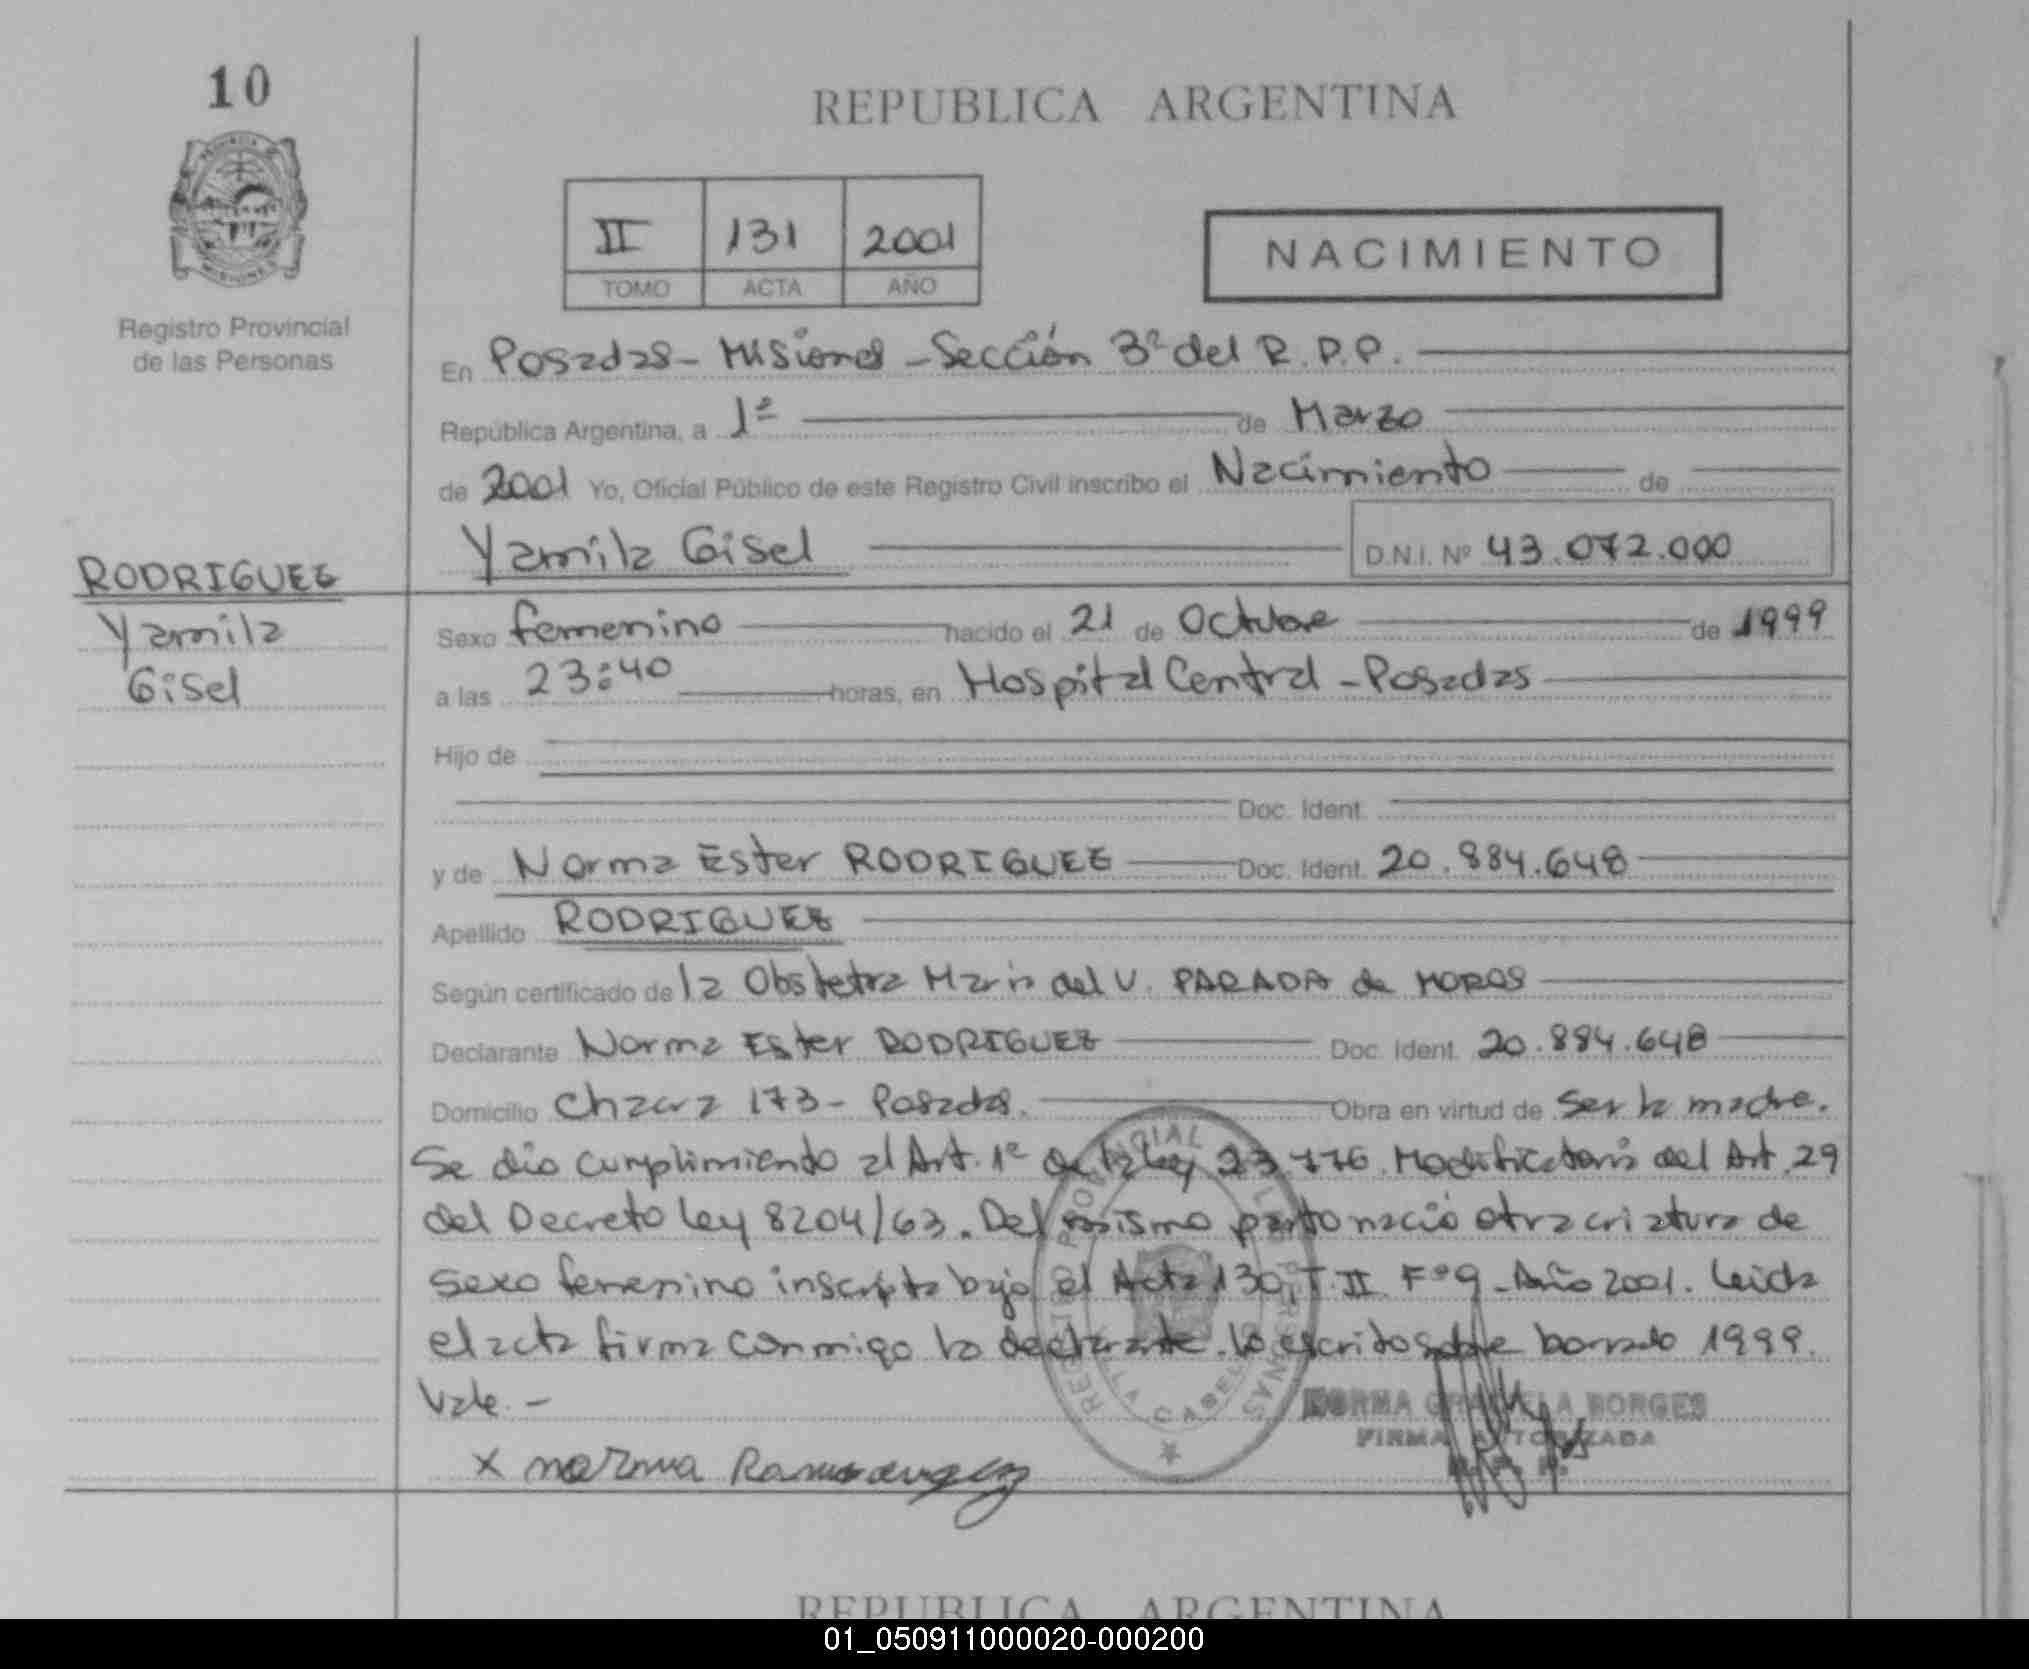 10
REPUBLICA ARGENTINA
II 131 2001
TOMO ACTA AÑO
NACIMIENTO
Registro Provincial
de las Personas
En Posadas - Misiones - Sección 3ª del R.P.P.
República Argentina, a 1º de Marzo
de 2001 Yo, Oficial Público de este Registro Civil inscribo el Nacimiento de
Yamila Gisel D.N.I. Nº 43.072.000
RODRIGUEZ
Yamila
Gisel
Sexo femenino nacido el 21 de Octubre de 1999
a las 23:40 horas, en Hospital Central - Posadas
Hijo de
Doc. Ident.
y de Norma Ester RODRIGUEZ Doc. Ident. 20.884.648
Apellido RODRIGUEZ
Según certificado de la Obstetra Maria del V. PARADA de MOROS
Declarante Norma Ester RODRIGUEZ Doc. Ident. 20.884.648
Domicilio Chacra 173 - Posadas. Obra en virtud de ser la madre.
Se dio cumplimiento al Art. 1º de la Ley 23.776. Modificatoria del Art. 29
del Decreto Ley 8204/63. Del mismo parto nació otra criatura de
sexo femenino inscripta bajo el Acta 130, T. II Fº 9 - Año 2001. Leida
el acta firma conmigo la declarante. Lo escrito sobre borrado 1999.
Vale. -
REGISTRO PROVINCIAL DE LAS PERSONAS
VILLA CABELLO
NORMA GRACIELA BORGES
FIRMA AUTORIZADA
x norma
REPUBLICA ARGENTINA
01_050911000020-000200